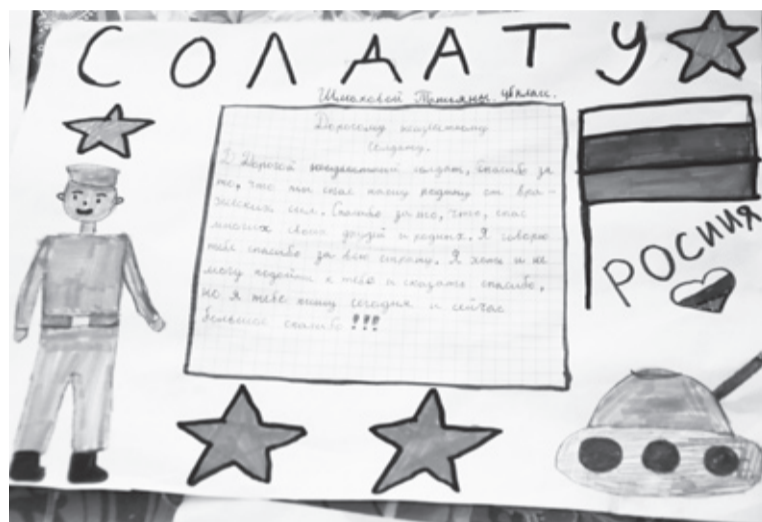 СОЛДАТУ
Шмаковой Татьяны. класс.
Дорогому неизвестному
солдату.
Дорогой неизвестный солдат, спасибо за
то, что ты спас нашу родину от вра-
жеских сил. Спасибо за то, что, спас
многих своих друзей и родных. Я говорю
тебе спасибо за всю охрану. Я хоть и не
могу подойти к тебе и сказать спасибо,
но я тебе пишу сегодня и сейчас
большое спасибо !!!
РОСИИЯ